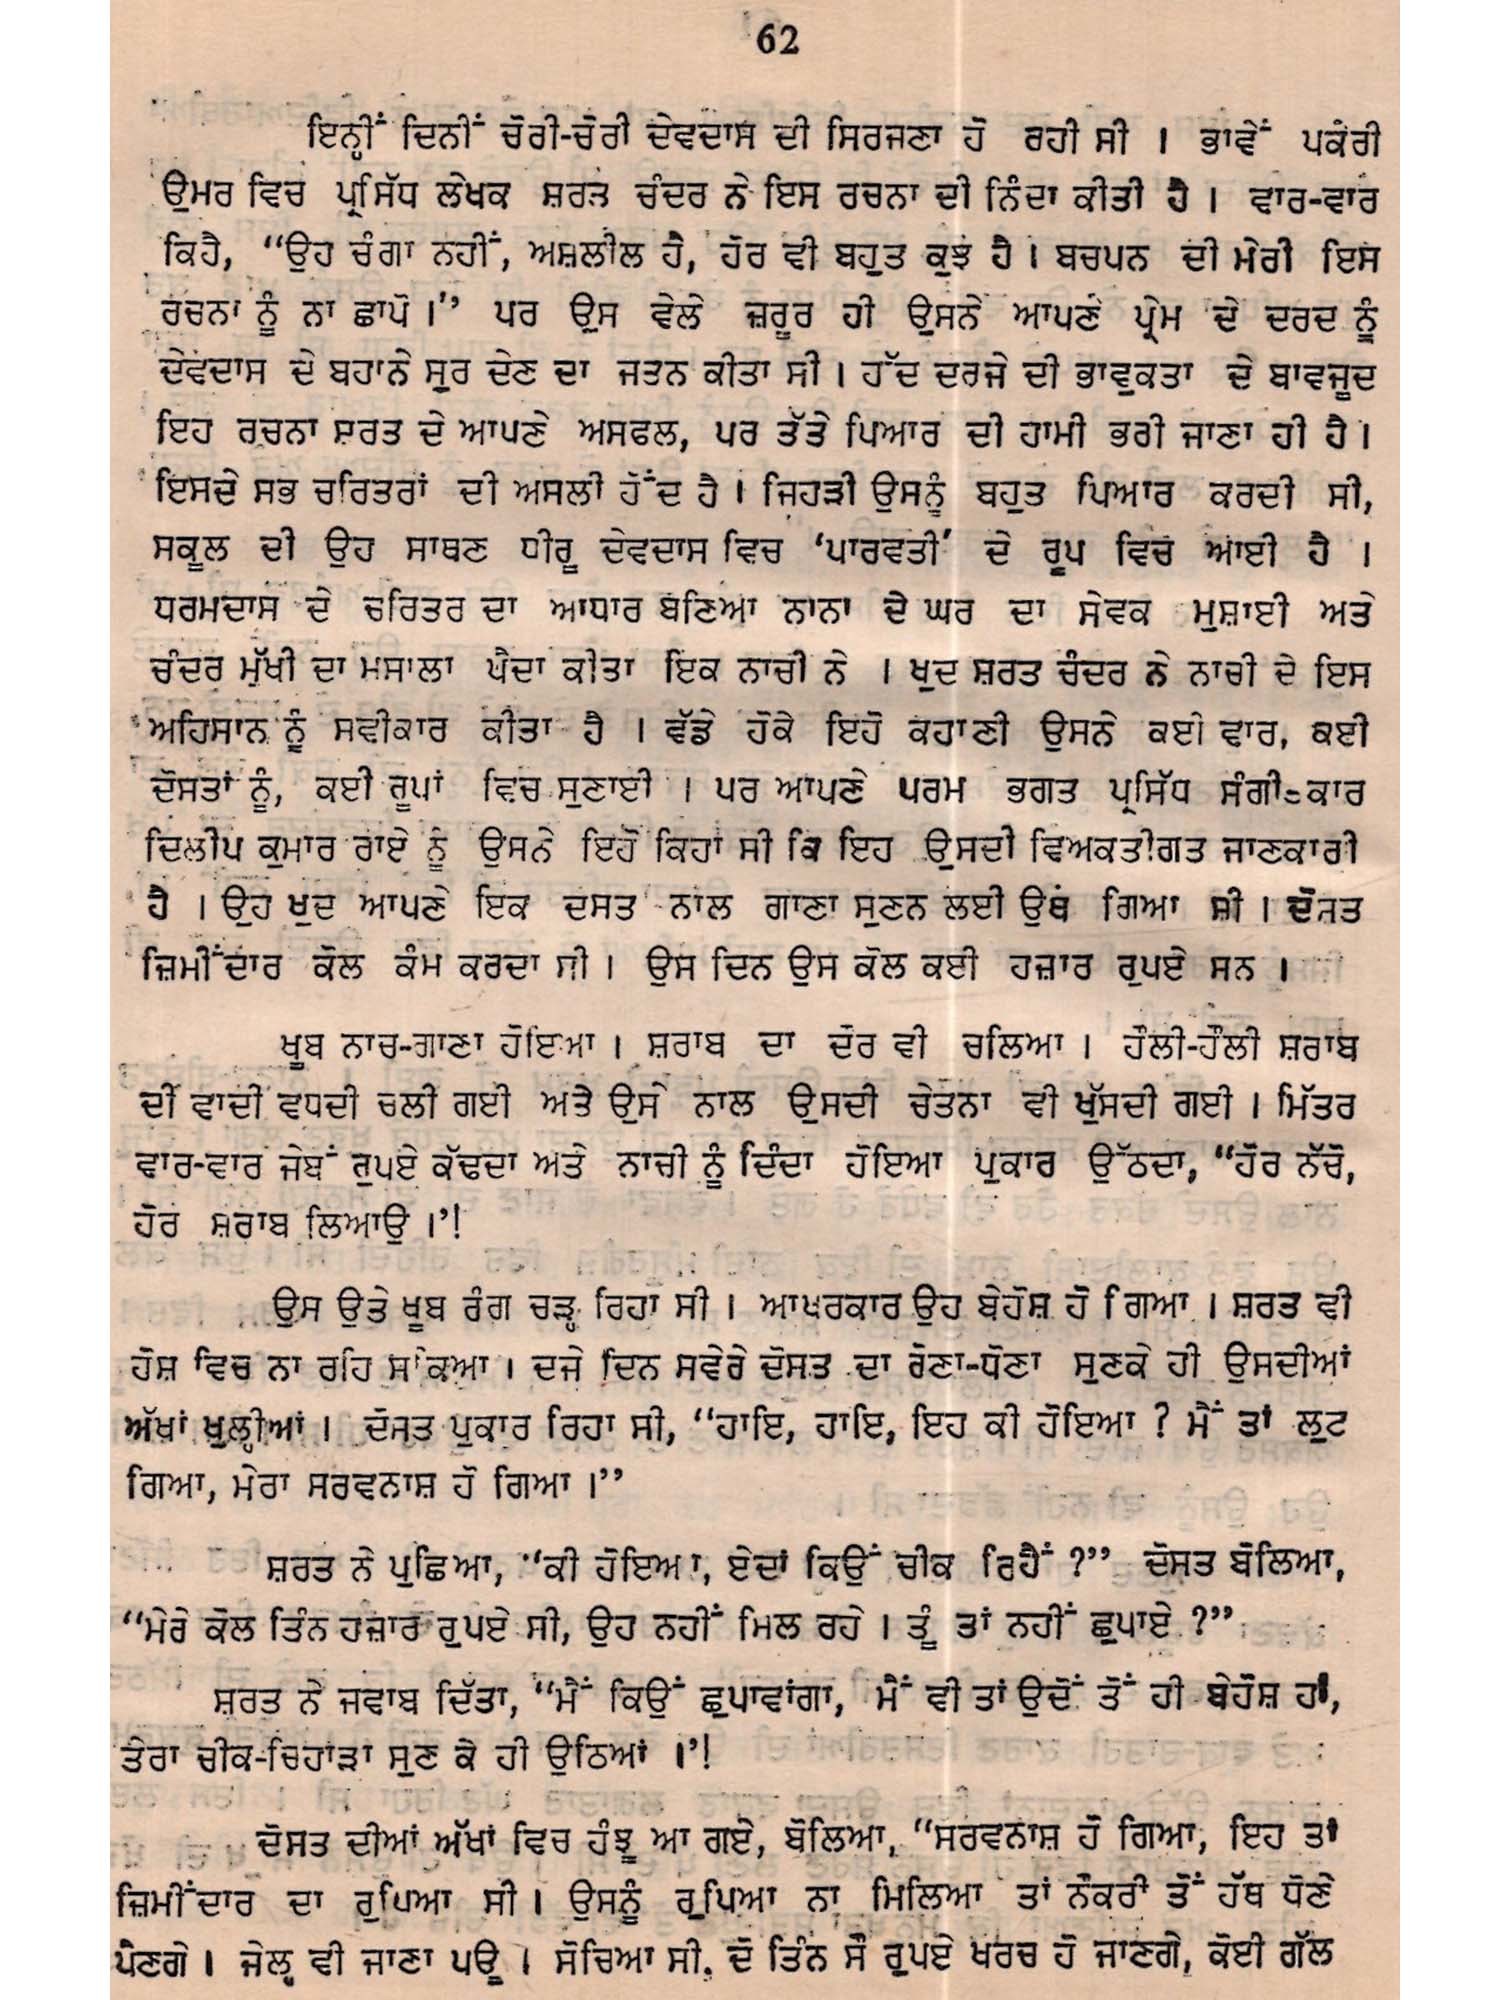 62
ਇਨ੍ਹੀਂ ਦਿਨੀਂ ਚੋਰੀ-ਚੋਰੀ ਦੇਵਦਾਸ ਦੀ ਸਿਰਜਣਾ ਹੋ ਰਹੀ ਸੀ । ਭਾਵੇਂ ਪਕੇਰੀ
ਉਮਰ ਵਿਚ ਪ੍ਰਸਿੱਧ ਲੇਖਕ ਸ਼ਰਤ ਚੰਦਰ ਨੇ ਇਸ ਰਚਨਾ ਦੀ ਨਿੰਦਾ ਕੀਤੀ ਹੈ । ਵਾਰ-ਵਾਰ
ਕਿਹੈ, “ਉਹ ਚੰਗਾ ਨਹੀਂ, ਅਸ਼ਲੀਲ ਹੈ, ਹੋਰ ਵੀ ਬਹੁਤ ਕੁਝ ਹੈ । ਬਚਪਨ ਦੀ ਮੇਰੀ ਇਸ
ਰਚਨਾ ਨੂੰ ਨਾ ਛਾਪੋ ।” ਪਰ ਉਸ ਵੇਲੇ ਜ਼ਰੂਰ ਹੀ ਉਸਨੇ ਆਪਣੇ ਪ੍ਰੇਮ ਦੇ ਦਰਦ ਨੂੰ
ਦੇਵਦਾਸ ਦੇ ਬਹਾਨੇ ਸੁਰ ਦੇਣ ਦਾ ਜਤਨ ਕੀਤਾ ਸੀ । ਹੱਦ ਦਰਜੇ ਦੀ ਭਾਵੁਕਤਾ ਦੇ ਬਾਵਜੂਦ
ਇਹ ਰਚਨਾ ਸ਼ਰਤ ਦੇ ਆਪਣੇ ਅਸਫਲ, ਪਰ ਤੱਤੇ ਪਿਆਰ ਦੀ ਹਾਮੀ ਭਰੀ ਜਾਣਾ ਹੀ ਹੈ ।
ਇਸਦੇ ਸਭ ਚਰਿਤਰਾਂ ਦੀ ਅਸਲੀ ਹੋਂਦ ਹੈ । ਜਿਹੜੀ ਉਸਨੂੰ ਬਹੁਤ ਪਿਆਰ ਕਰਦੀ ਸੀ,
ਸਕੂਲ ਦੀ ਉਹ ਸਾਥਣ ਧੀਰੂ ਦੇਵਦਾਸ ਵਿਚ ‘ਪਾਰਵਤੀ’ ਦੇ ਰੂਪ ਵਿਚ ਆਈ ਹੈ ।
ਧਰਮਦਾਸ ਦੇ ਚਰਿਤਰ ਦਾ ਆਧਾਰ ਬਣਿਆ ਨਾਨਾ ਦੇ ਘਰ ਦਾ ਸੇਵਕ ਮੁਸ਼ਾਈ ਅਤੇ
ਚੰਦਰ ਮੁੱਖੀ ਦਾ ਮਸਾਲਾ ਪੈਦਾ ਕੀਤਾ ਇਕ ਨਾਚੀ ਨੇ । ਖੁਦ ਸ਼ਰਤ ਚੰਦਰ ਨੇ ਨਾਚੀ ਦੇ ਇਸ
ਅਹਿਸਾਨ ਨੂੰ ਸਵੀਕਾਰ ਕੀਤਾ ਹੈ । ਵੱਡੇ ਹੋਕੇ ਇਹੋ ਕਹਾਣੀ ਉਸਨੇ ਕਈ ਵਾਰ, ਕਈ
ਦੋਸਤਾਂ ਨੂੰ, ਕਈ ਰੂਪਾਂ ਵਿਚ ਸੁਣਾਈ । ਪਰ ਆਪਣੇ ਪਰਮ ਭਗਤ ਪ੍ਰਸਿੱਧ ਸੰਗੀਤਕਾਰ
ਦਿਲੀਪ ਕੁਮਾਰ ਰਾਏ ਨੂੰ ਉਸਨੇ ਇਹੋ ਕਿਹਾ ਸੀ ਕਿ ਇਹ ਉਸਦੀ ਵਿਅਕਤੀਗਤ ਜਾਣਕਾਰੀ
ਹੈ । ਉਹ ਖੁਦ ਆਪਣੇ ਇਕ ਦਸਤ ਨਾਲ ਗਾਣਾ ਸੁਣਨ ਲਈ ਉਥੇ ਗਿਆ ਸੀ । ਦੋਸਤ
ਜ਼ਿਮੀਂਦਾਰ ਕੋਲ ਕੰਮ ਕਰਦਾ ਸੀ । ਉਸ ਦਿਨ ਉਸ ਕੋਲ ਕਈ ਹਜ਼ਾਰ ਰੁਪਏ ਸਨ ।
ਖੂਬ ਨਾਚ-ਗਾਣਾ ਹੋਇਆ । ਸ਼ਰਾਬ ਦਾ ਦੌਰ ਵੀ ਚਲਿਆ । ਹੌਲੀ-ਹੌਲੀ ਸ਼ਰਾਬ
ਦੀ ਵਾਦੀ ਵਧਦੀ ਚਲੀ ਗਈ ਅਤੇ ਉਸੇ ਨਾਲ ਉਸਦੀ ਚੇਤਨਾ ਵੀ ਖੁੱਸਦੀ ਗਈ । ਮਿੱਤਰ
ਵਾਰ-ਵਾਰ ਜੇਬੋਂ ਰੁਪਏ ਕੱਢਦਾ ਅਤੇ ਨਾਚੀ ਨੂੰ ਦਿੰਦਾ ਹੋਇਆ ਪੁਕਾਰ ਉੱਠਦਾ, “ਹੋਰ ਨੱਚੋ,
ਹੋਰ ਸ਼ਰਾਬ ਲਿਆਉ ।’!
ਉਸ ਉਤੇ ਖੂਬ ਰੰਗ ਚੜ੍ਹ ਰਿਹਾ ਸੀ । ਆਖਰਕਾਰ ਉਹ ਬੇਹੋਸ਼ ਹੋ ਗਿਆ । ਸ਼ਰਤ ਵੀ
ਹੋਸ਼ ਵਿਚ ਨਾ ਰਹਿ ਸਕਿਆ । ਦੂਜੇ ਦਿਨ ਸਵੇਰੇ ਦੋਸਤ ਦਾ ਰੋਣਾ-ਧੋਣਾ ਸੁਣਕੇ ਹੀ ਉਸਦੀਆਂ
ਅੱਖਾਂ ਖੁਲ੍ਹੀਆਂ । ਦੋਸਤ ਪੁਕਾਰ ਰਿਹਾ ਸੀ, “ਹਾਇ, ਹਾਇ, ਇਹ ਕੀ ਹੋਇਆ ? ਮੈਂ ਤਾਂ ਲੁਟ
ਗਿਆ, ਮੇਰਾ ਸਰਵਨਾਸ਼ ਹੋ ਗਿਆ ।”
ਸ਼ਰਤ ਨੇ ਪੁਛਿਆ, “ਕੀ ਹੋਇਆ, ਏਦਾਂ ਕਿਉਂ ਚੀਕ ਰਿਹੈਂ ?” ਦੋਸਤ ਬੋਲਿਆ,
“ਮੇਰੇ ਕੋਲ ਤਿੰਨ ਹਜ਼ਾਰ ਰੁਪਏ ਸੀ, ਉਹ ਨਹੀਂ ਮਿਲ ਰਹੇ । ਤੂੰ ਤਾਂ ਨਹੀਂ ਛੁਪਾਏ ?”
ਸ਼ਰਤ ਨੇ ਜਵਾਬ ਦਿੱਤਾ, “ਮੈਂ ਕਿਉਂ ਛੁਪਾਵਾਂਗਾ, ਮੈਂ ਵੀ ਤਾਂ ਉਦੋਂ ਤੋਂ ਹੀ ਬੇਹੋਸ਼ ਹਾਂ,
ਤੇਰਾ ਚੀਕ-ਚਿਹਾੜਾ ਸੁਣ ਕੇ ਹੀ ਉਠਿਆਂ ।’!
ਦੋਸਤ ਦੀਆਂ ਅੱਖਾਂ ਵਿਚ ਹੰਝੂ ਆ ਗਏ, ਬੋਲਿਆ, “ਸਰਵਨਾਸ਼ ਹੋ ਗਿਆ, ਇਹ ਤਾਂ
ਜ਼ਿਮੀਂਦਾਰ ਦਾ ਰੁਪਿਆ ਸੀ । ਉਸਨੂੰ ਰੁਪਿਆ ਨਾ ਮਿਲਿਆ ਤਾਂ ਨੌਕਰੀ ਤੋਂ ਹੱਥ ਧੋਣੇ
ਪੈਣਗੇ । ਜੇਲ੍ਹ ਵੀ ਜਾਣਾ ਪਊ । ਸੋਚਿਆ ਸੀ, ਦੋ ਤਿੰਨ ਸੌ ਰੁਪਏ ਖਰਚ ਹੋ ਜਾਣਗੇ, ਕੋਈ ਗੱਲ